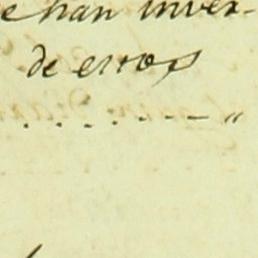 e han inver-
de erros
. . . . . . . - - - "